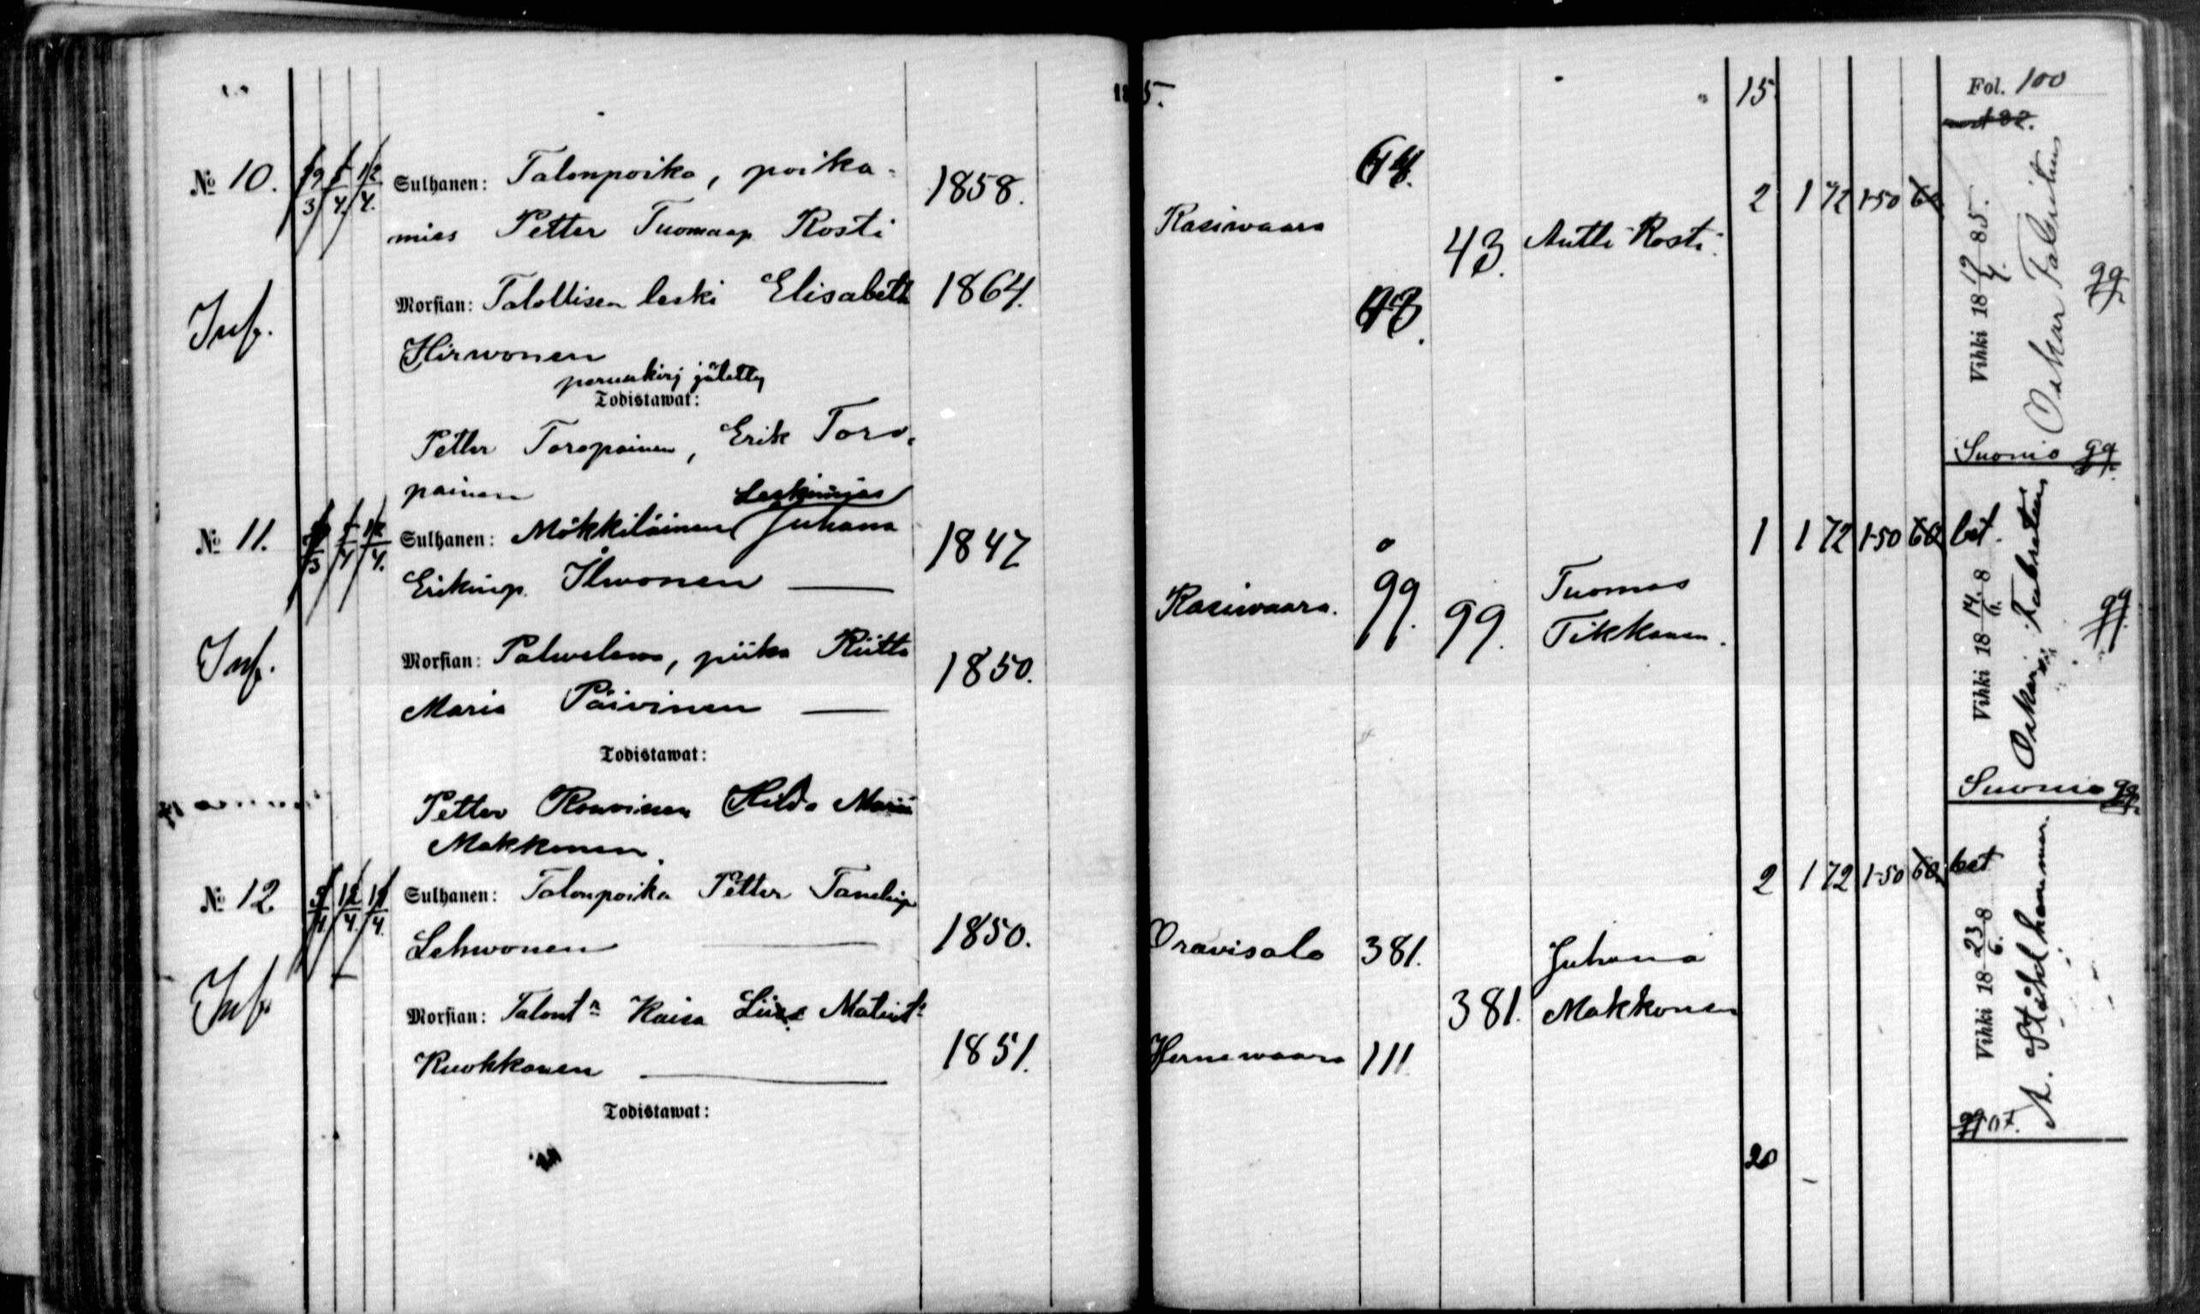 15
Fol. 100
№ 10. 29/3 5/4 12/4 Sulhanen: Talonpoika, poika-
mies Petter Tuomaap Rosti 1858.
Rasiwaara 64. 43. Antti Rosti 2 1 72 1-50 60
Morsian: Talollisen leski Elisabeth 1864.
Hirwonen
Inf.
perunkirj jätetty
Todistawat:
Petter Toropainen, Erik Toro-
painen
Vihki 18 19/4 85.
Oskar Fabritius
Suonio
№ 11. 5/4 12/4 Leskimies
Sulhanen: Mökkiläinen Juhana 1847
Erikinp. Ilwonen
Rasiwaara. 99. 99. Tuomas
Tikkanen. 1 1 72 1-50 60 bet.
Inf.
Morsian: Palwelewa, piika Riitta 1850.
Maria Päivinen
Todistawat:
Petter Rouvinen Hilda Maria
Makkonen.
Vihki 18 14/6 8
Oskar Fabritius
Suonio
№ 12 5/4 12/4 19/4 Sulhanen: Talonpoika Petter Tanelinp
Lehwonen 1850.
Oravisalo 381. 381. Juhana
Makkonen 2 1 72 1-50 60 bet
Inf.
Morsian: Talont:n Kaisa Liisa Matint:
Ruokkonen 1851.
Hernewaara 111
Todistawat:
Vihki 18 23/6 8
A. Ståhlhammar.
20